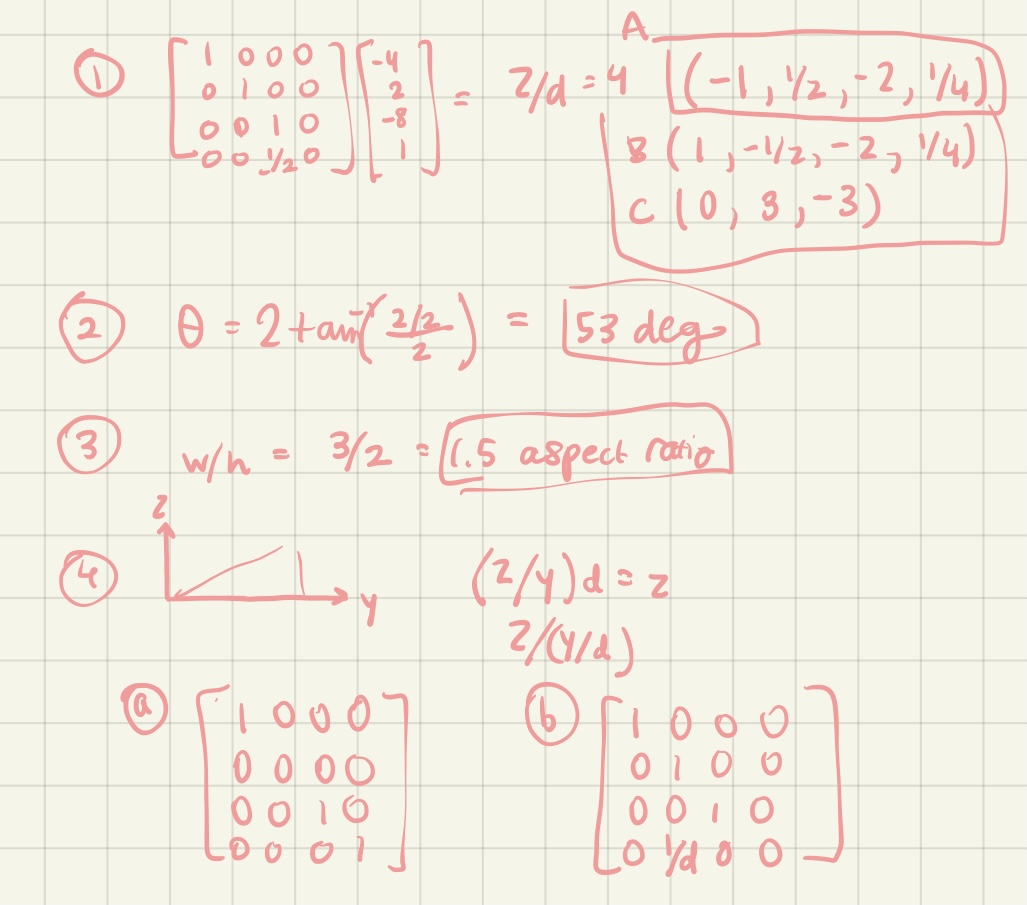 ① [1 0 0 0; 0 1 0 0; 0 0 1 0; 0 0 -1/2 0] [-4; 2; -8; 1] = z/d = 4 A (-1, 1/2, -2, 1/4)
B (1, -1/2, -2, 1/4)
C (0, 3, -3)
② θ = 2 tan⁻¹((2/2)/2) = 53 deg
③ w/h = 3/2 = 1.5 aspect ratio
z
④ (z/y)d = z
y
z/(y/d)
ⓐ [1 0 0 0; 0 0 0 0; 0 0 1 0; 0 0 0 1] ⓑ [1 0 0 0; 0 1 0 0; 0 0 1 0; 0 1/d 0 0]